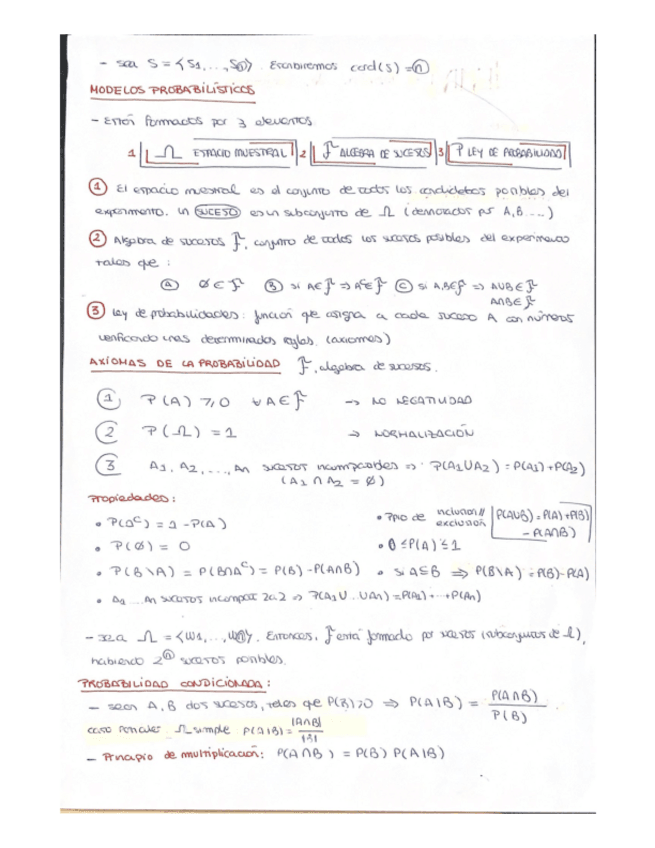 - sea S = {S1, ..., Sn}. Escribiremos card(S) = n
MODELOS PROBABILÍSTICOS
- Están formados por 3 elementos
1 Ω ESPACIO MUESTRAL 2 F ALGEBRA DE SUCESOS 3 P LEY DE PROBABILIDAD
1 El espacio muestral es el conjunto de todos los candidatos posibles del
experimento. Un SUCESO es un subconjunto de Ω (denotados por A, B ....)
2 Algebra de sucesos F, conjunto de todos los sucesos posibles del experimento
tales que :
a ∅ ∈ F b si A∈F ⇒ Aᶜ∈F c si A,B∈F ⇒ AUB∈F
A∩B∈F
3 Ley de probabilidades: función que asigna a cada suceso A con números
verificando unas determinadas reglas. (axiomas)
AXIOMAS DE LA PROBABILIDAD F, algebra de sucesos.
1 P(A) ≥ 0 ∀A∈F → NO NEGATIVIDAD
2 P(Ω) = 1 → NORMALIZACIÓN
3 A1, A2, ..., An sucesos incompatibles ⇒ P(A1UA2) = P(A1)+P(A2)
(A1 ∩ A2 = ∅)
Propiedades:
• P(Aᶜ) = 1 - P(A) • Ppio de inclusion// exclusión P(AUB) = P(A)+P(B) - P(A∩B)
• P(∅) = 0 • 0 ≤ P(A) ≤ 1
• P(B\A) = P(B∩Aᶜ) = P(B) - P(A∩B) • si A⊆B ⇒ P(B\A) = P(B)-P(A)
• A1 ... An sucesos incompat 2a2 ⇒ P(A1 U .. UAn) = P(A1)+...+P(An)
- sea Ω = {ω1, ..., ωn}. Entonces, F está formado por sucesos (subconjuntos de Ω),
habiendo 2ⁿ sucesos posibles.
PROBABILIDAD CONDICIONADA:
- sean A, B dos sucesos, tales que P(B)>0 ⇒ P(A|B) = P(A∩B) / P(B)
caso Ω simple P(A|B) = |A∩B| / |B|
- Principio de multiplicación: P(A∩B) = P(B) P(A|B)